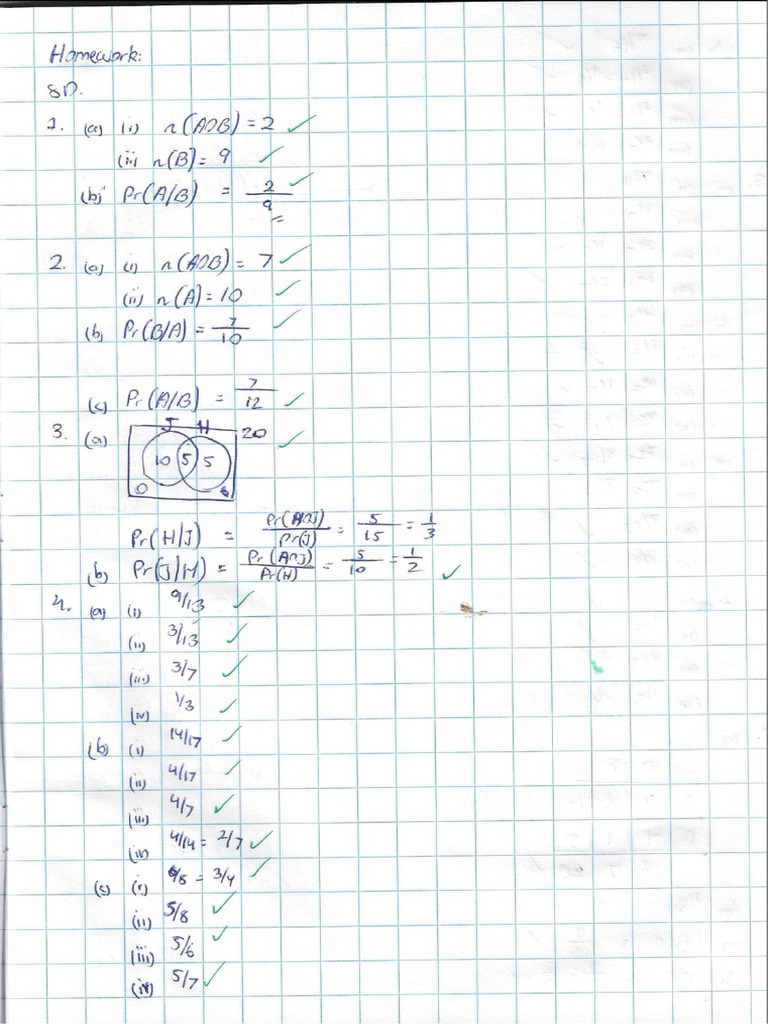 Homework:
8D.
1. (a) (i) n(A∩B) = 2 ✓
(ii) n(B) = 9 ✓
(b) Pr(A/B) = 2/9 ✓
2. (a) (i) n(A∩B) = 7 ✓
(ii) n(A) = 10 ✓
(b) Pr(B/A) = 7/10 ✓
(c) Pr(A/B) = 7/12 ✓
3. (a) J H 20 ✓
10 5 5
0
Pr(H|J) = Pr(A∩J)/Pr(J) = 5/15 = 1/3
(b) Pr(J|H) = Pr(A∩J)/Pr(H) = 5/10 = 1/2 ✓
4. (a) (i) 9/13 ✓
(ii) 3/13 ✓
(iii) 3/7 ✓
(iv) 1/3 ✓
(b) (i) 14/17 ✓
(ii) 4/17 ✓
(iii) 4/7 ✓
(iv) 4/14 = 2/7 ✓
(c) (i) 6/8 = 3/4 ✓
(ii) 5/8 ✓
(iii) 5/6 ✓
(iv) 5/7 ✓